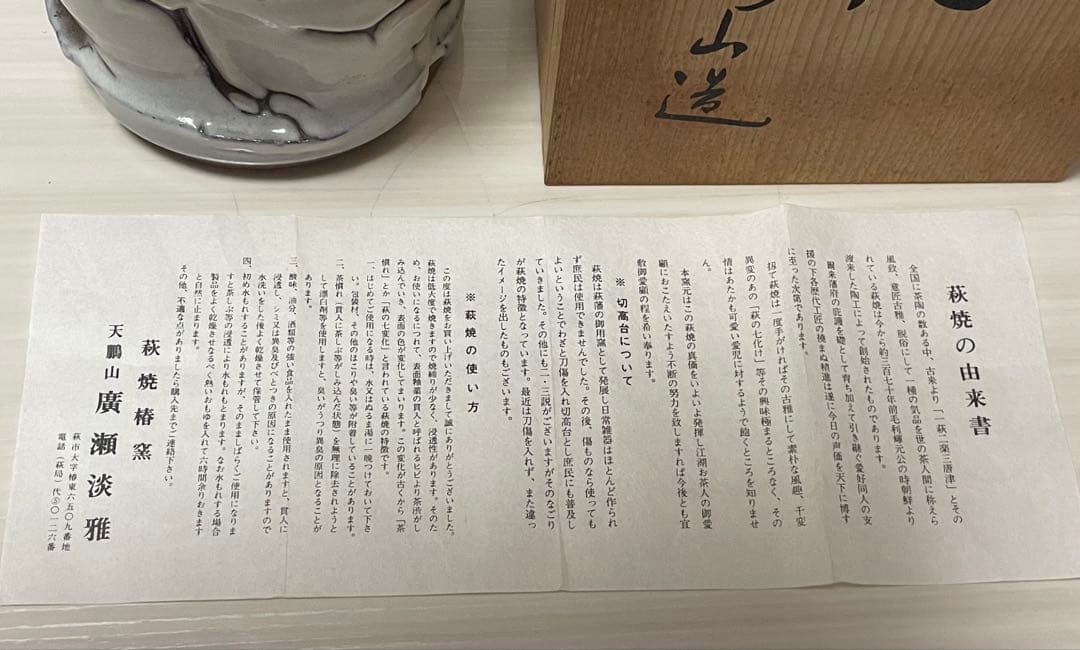 山造
萩焼の由来書
全国に茶陶の数ある中、古来より「一萩二楽三唐津」とその
風致、意匠古雅、脱俗にして一種の気品を世の茶人間に称えら
れている萩焼は今から約三百七十年前毛利輝元公の時朝鮮より
渡来した陶工によって創始されたものであります。
爾来藩府の庇護を礎として育ち加えて引き継ぐ愛好同人の支
援の下各歴代工匠の撓まぬ精進は遂に今日の声価を天下に博す
に至った次第であります。
扨て萩焼は一度手がければその古雅にして素朴な風趣、千変
異変のあの「萩の七化け」等その興味極まるところなく、その
情はあたかも可愛い愛児に対するようで飽くところを知りませ
ん。
本窯元はこの萩焼の真価をいよいよ発揮し江湖お茶人の御愛
顧におこたえいたすよう不断の努力を致しますれば今後とも宜
敷御愛顧の程を希い奉ります。
※ 切高台について
萩焼は萩藩の御用窯として発展し日常雑器はほとんど作られ
ず庶民は使用できませんでした。その後、傷ものなら使っても
よいということでわざと刀傷を入れ切高台とし庶民にも普及し
ていきました。その他にも二・三説がございますがそのなごり
が萩焼の特徴となっています。最近は刀傷を入れず、また違っ
たイメージを出したものもございます。
※ 萩焼の使い方
この度は萩焼をお買い上げいただきまして誠にありがとうございました。
萩焼は低火度で焼きますので焼締りが少なく、浸透性があります。そのた
め、お使いになるにつれて、表面釉薬の貫入と呼ばれるヒビより茶渋がし
み込んでいき、表面の色が変化してまいります。この変化が古くから「茶
慣れ」とか「萩の七変化」と言われている萩焼の特徴です。
一、はじめてご使用になる時は、水又はぬるま湯に一晩つけておいて下さ
い。包装材、その他のほこりや臭い等が附着していることがあります。
二、茶慣れ（貫入に茶しぶ等がしみ込んだ状態）を無理に除去されようと
して漂白剤等を使用しますと、臭いがうつり異臭の原因となることが
あります。
三、酸味、油分、酒類等の強い食品を入れたまま使用されますと、貫入に
浸透し、シミ又は異臭及びべとつきの原因になることがありますので
水洗いをした後よく乾燥させて保管して下さい。
四、初め水もれすることがありますが、そのまましばらくご使用になりま
すと茶しぶ等の浸透により水もれもとまります。なお水もれする場合
製品をよく乾燥させなるべく熱いおもゆを入れて六時間余りおきます
と自然に止まります。
その他、不適な点がありましたら購入先までご連絡下さい。
萩焼椿窯
天鵬山 廣瀬淡雅
萩市大字椿東六五〇九番地
電話（萩局）代⑤〇一二六番